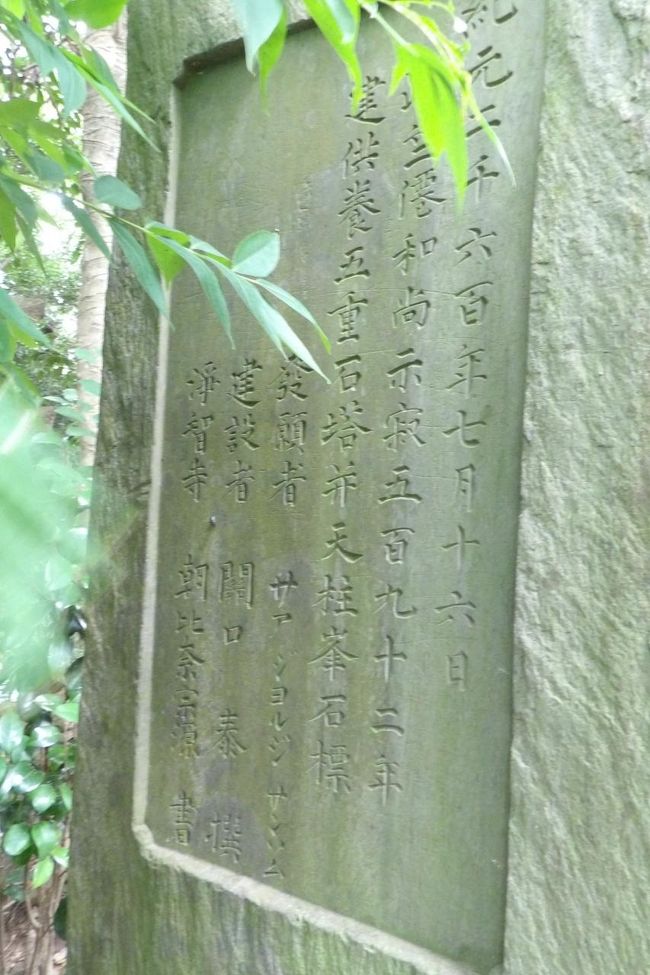 紀元二千六百年七月十六日
僊和尚示寂五百九十二年
建供養五重石塔并天柱峯石標
發願者 サア ジヨルジ サンソム
建設者 關口 泰 撰
淨智寺 朝比奈宗源 書